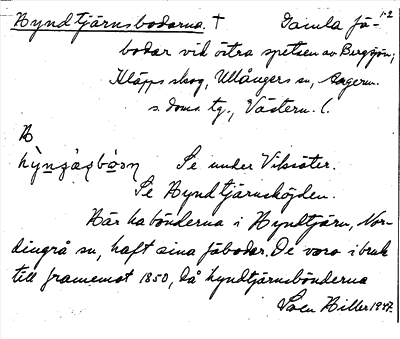 Hyndtjärnsbodarna. † Gamla fä- 1-2
bodar vid östra spetsen av Bergsjön,
Kläpps skog, Ullångers sn, Ångerm.
s. doms. tg., Västern. l.
H
Se under Vibsäter.
Se Hyndtjärnshöjden.
Här ha bönderna i Hyndtjärn, Nor-
dingrå sn, haft sina fäbodar. De voro i bruk
till framemot 1850, då hyndtjärnsbönderna
Sven Hiller 1947.